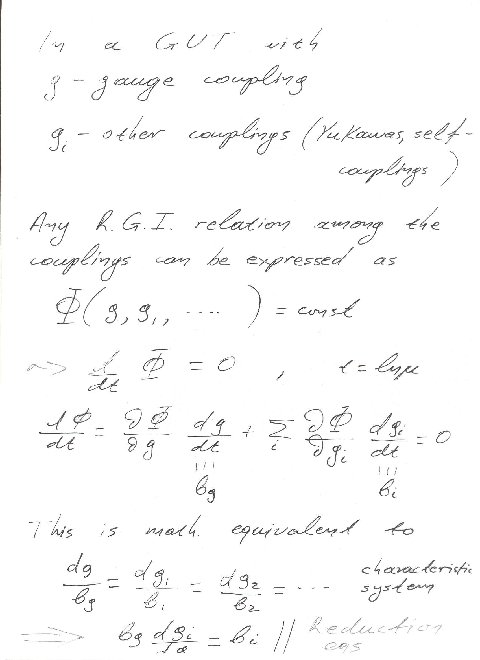 In a GUT with
g - gauge coupling
g_i - other couplings (Yukawas, self-
couplings)
Any R.G.I. relation among the
couplings can be expressed as
Φ(g, g_1, ....) = const
~> d/dt Φ = 0 , t = lnμ
dΦ/dt = ∂Φ/∂g dg/dt + Σ_i ∂Φ/∂g_i dg_i/dt = 0
||| |||
β_g β_i
This is math. equivalent to
dg/β_g = dg_1/β_1 = dg_2/β_2 = ... characteristic
system
=> β_g dg_i/dg = β_i // Reduction
eqs